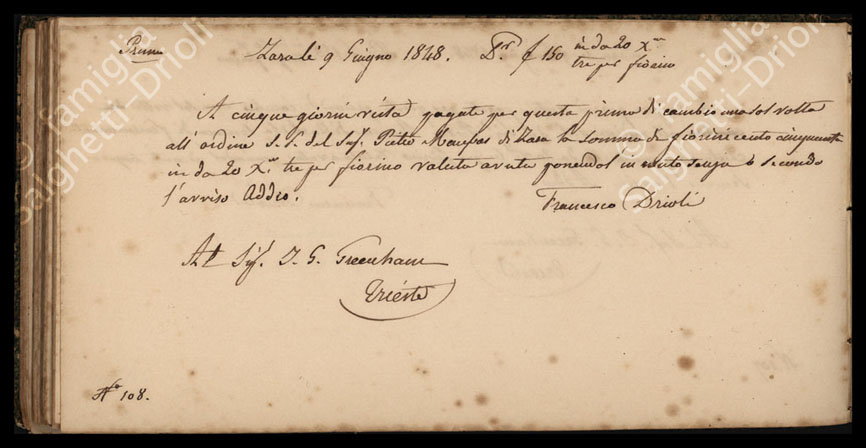 Prima
Zara li 9 Giugno 1848. Pr. f 150 in da 20 Xni
tre per fiorino
A cinque giorni vista pagate per questa prima di cambio una sol volta
all'ordine S.S. del Sigr. Pietro di Zara la somma di fiorini cento cinquanta
in da 20 Xni tre per fiorino valuta avuta ponendol in conto senza o secondo
l'avviso Addio. Francesco Drioli
Al Sigr. J. G. Greenham
Trieste
No 108.
© famiglia
Salghetti-Drioli
© famiglia
Salghetti-Drioli
© famiglia
Salghetti-Drioli